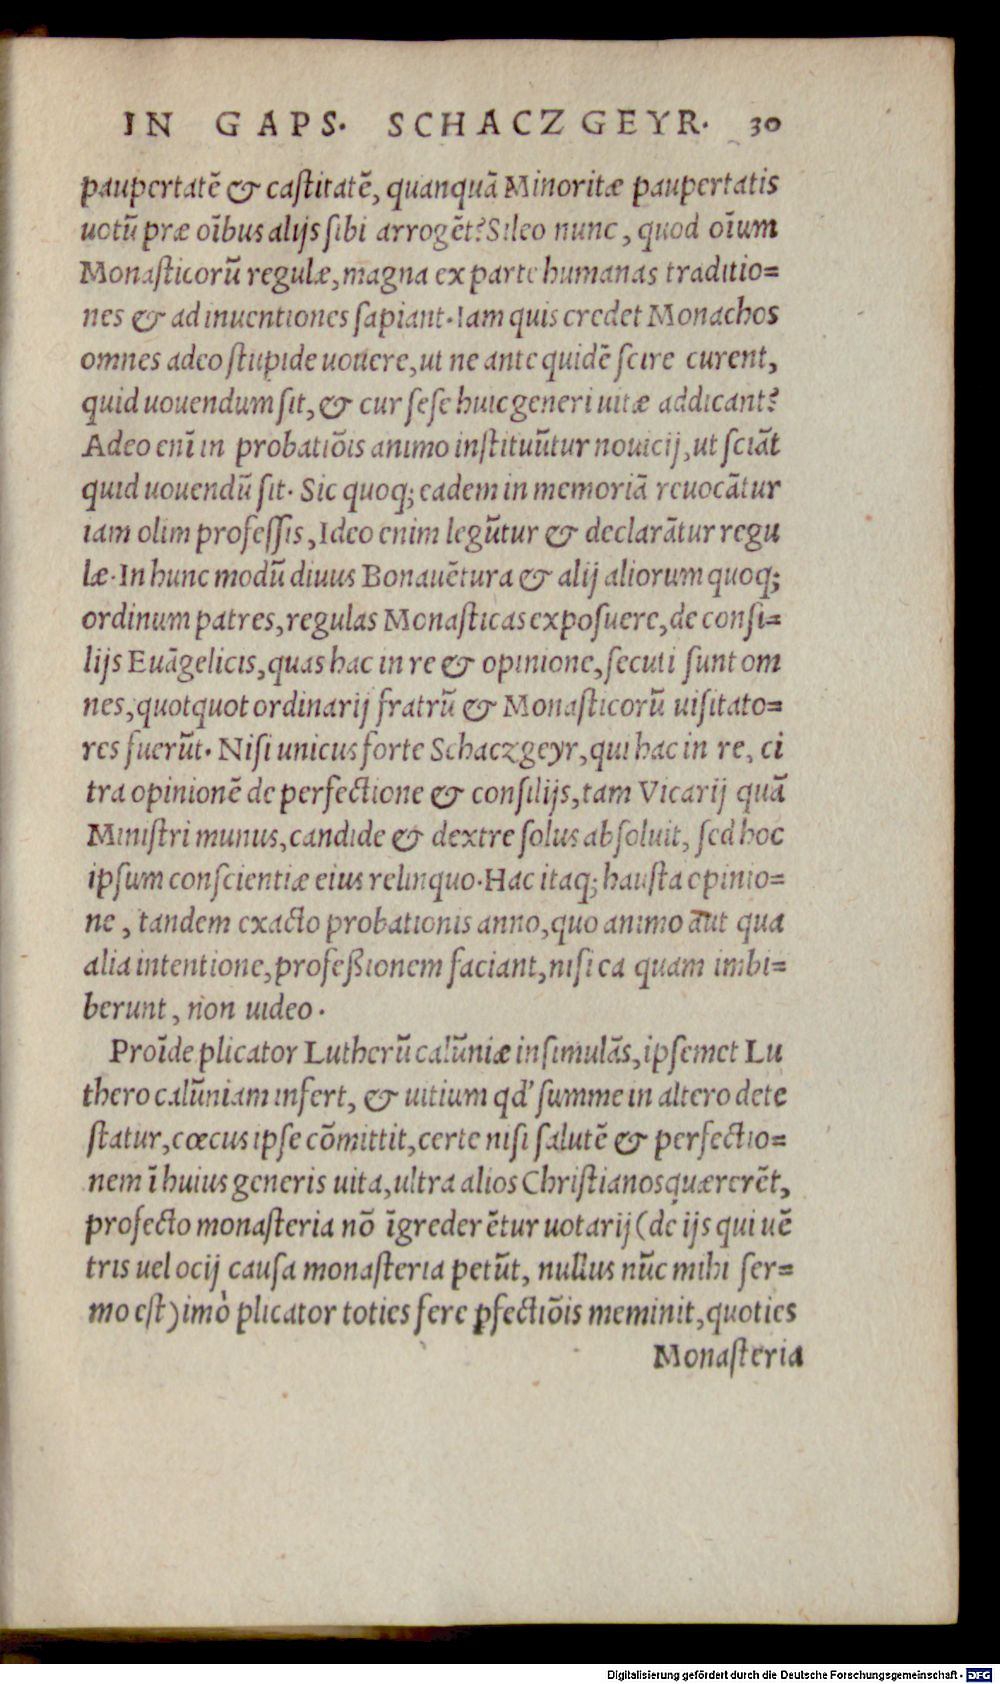 IN GAPS. SCHACZGEYR. 30
paupertatē & caſtitatē, quanquā Minoritæ paupertatis
uotū præ oībus alijs ſibi arrogēt? Sileo nunc, quod oīum
Monaſticorū regulæ, magna ex parte humanas traditio=
nes & ad inuentiones ſapiant. Iam quis credet Monachos
omnes adeo ſtupide uouere, ut ne ante quidē ſcire curent,
quid uouendum ſit, & cur ſeſe huic generi uitæ addicant?
Adeo enī in probatiōis animo inſtituūtur nouicij, ut ſciāt
quid uouendū ſit. Sic quoq; eadem in memoriā reuocātur
iam olim profeſſis, Ideo enim legūtur & declarātur regu
læ. In hunc modū diuus Bonauētura & alij aliorum quoq;
ordinum patres, regulas Monaſticas expoſuere, de conſi=
lijs Euāgelicis, quas hac in re & opinione, ſecuti ſunt om
nes, quotquot ordinarij fratrū & Monaſticorū uiſitato=
res fuerūt. Niſi unicus forte Schaczgeyr, qui hac in re, ci
tra opinionē de perfectione & conſilijs, tam Vicarij quā
Miniſtri munus, candide & dextre ſolus abſoluit, ſed hoc
ipſum conſcientiæ eius relinquo. Hac itaq; hauſta opinio=
ne, tandem exacto probationis anno, quo animo aut qua
alia intentione, profeßionem faciant, niſi ea quam imbi=
berunt, non uideo.
Proīde plicator Lutherū calūniæ inſimulās, ipſemet Lu
thero calūniam infert, & uitium qd' ſumme in altero dete
ſtatur, cœcus ipſe cōmittit, certe niſi ſalutē & perfectio=
nem ī huius generis uita, ultra alios Chriſtianos quærerēt,
profecto monaſteria nō īgrederētur uotarij (de ijs qui uē
tris uel ocij cauſa monaſteria petūt, nullus nūc mihi ſer=
mo eſt) imò plicator toties fere ꝑfectiōis meminit, quoties
Monaſteria
Digitalisierung gefördert durch die Deutsche Forschungsgemeinschaft - DFG